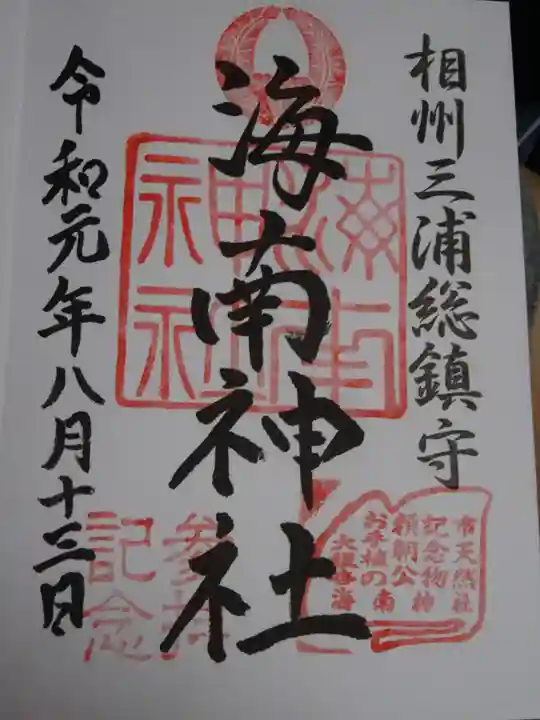 相州三浦総鎮守
海南神社
令和元年八月十三日
市天然
記念物
頼朝公
お手植の
大銀杏
海南神社
参拝
記念